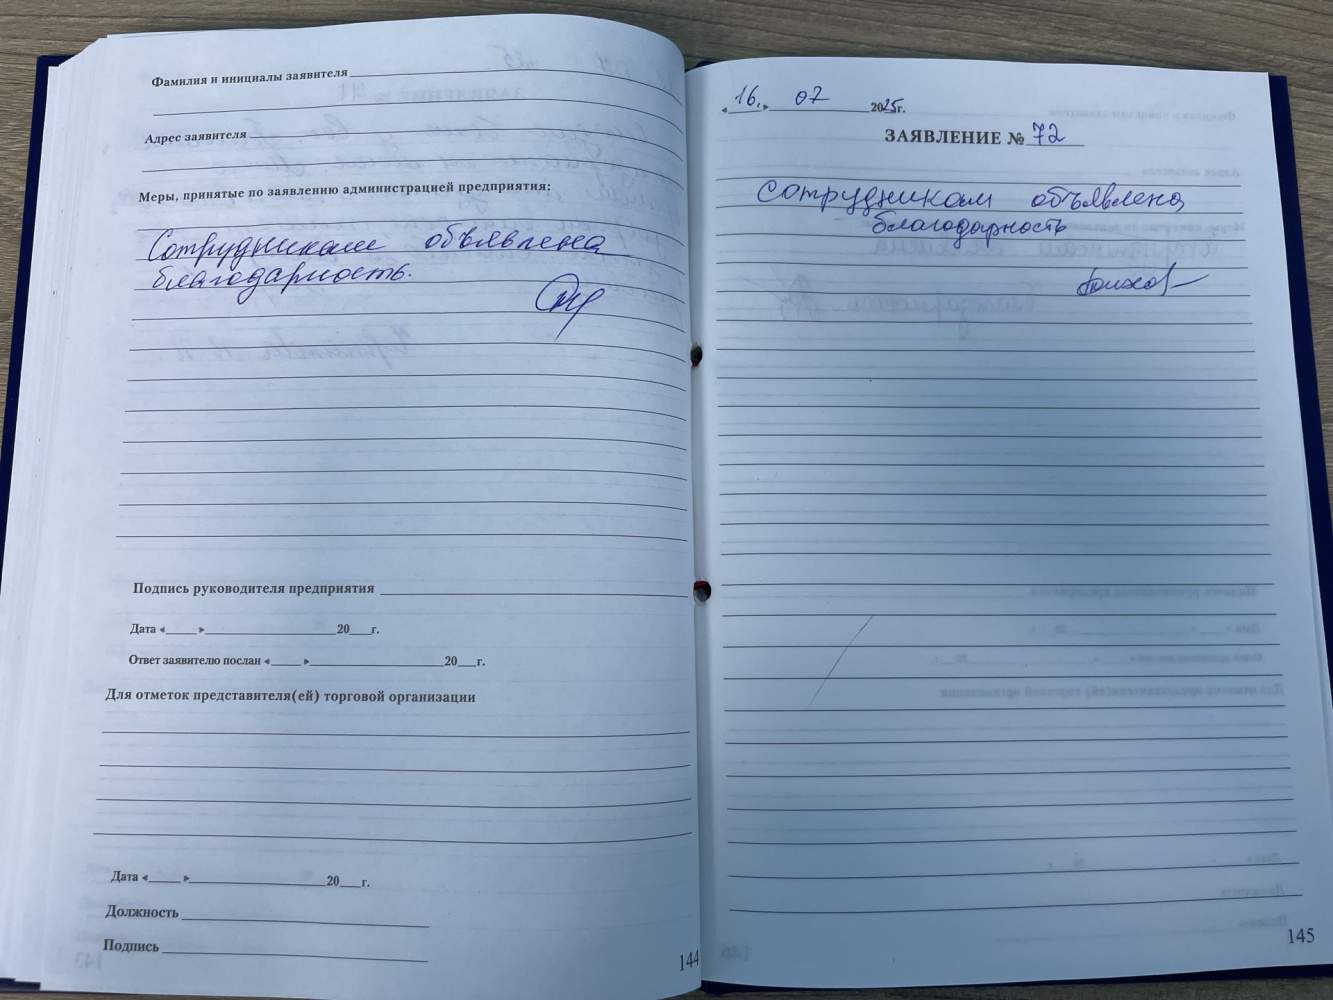 Фамилия и инициалы заявителя
Адрес заявителя
Меры, принятые по заявлению администрацией предприятия:
Сотрудникам объявлена
благодарность.
Подпись руководителя предприятия
Дата «____»____________20___г.
Ответ заявителю послан «____»____________20___г.
Для отметок представителя(ей) торговой организации
Дата «____»____________20___г.
Должность
Подпись
144
«16.» 07 2025г.
ЗАЯВЛЕНИЕ № 72
Сотрудникам объявлена
благодарность
145